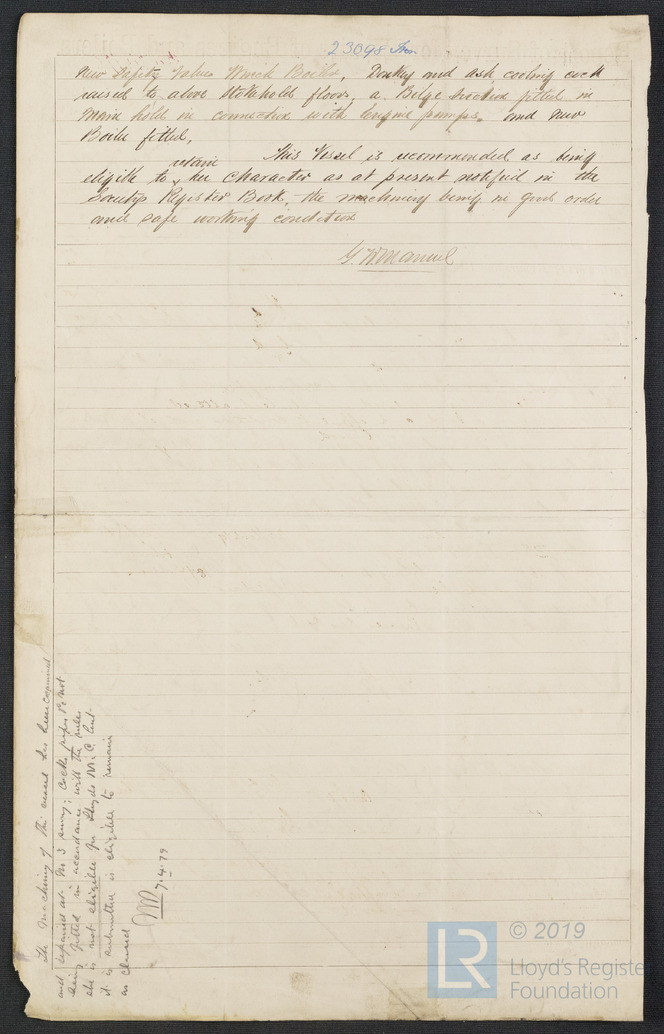 23098 Iron
New Safety Valves Winch Boiler, Donkey and ash cooling cock
raised to above stokehold floors, a Bilge Suction fitted in
Main hold in connection with engine pumps, and New
Boiler fitted,
This Vessel is recommended as being
eligible to retain her character as at present notified in the
Societys Register Book, the machinery being in good order
and safe working condition
G. W. Manuel
The machinery of this vessel has been examined
and repaired at No 3 survey; cocks pipes &c not
being fitted in accordance with the rules
she is not eligible for Lloyds M.C. but
it is submitted is eligible to remain
as classed
7.4.79
© 2019
Lloyd's Register
Foundation
LR